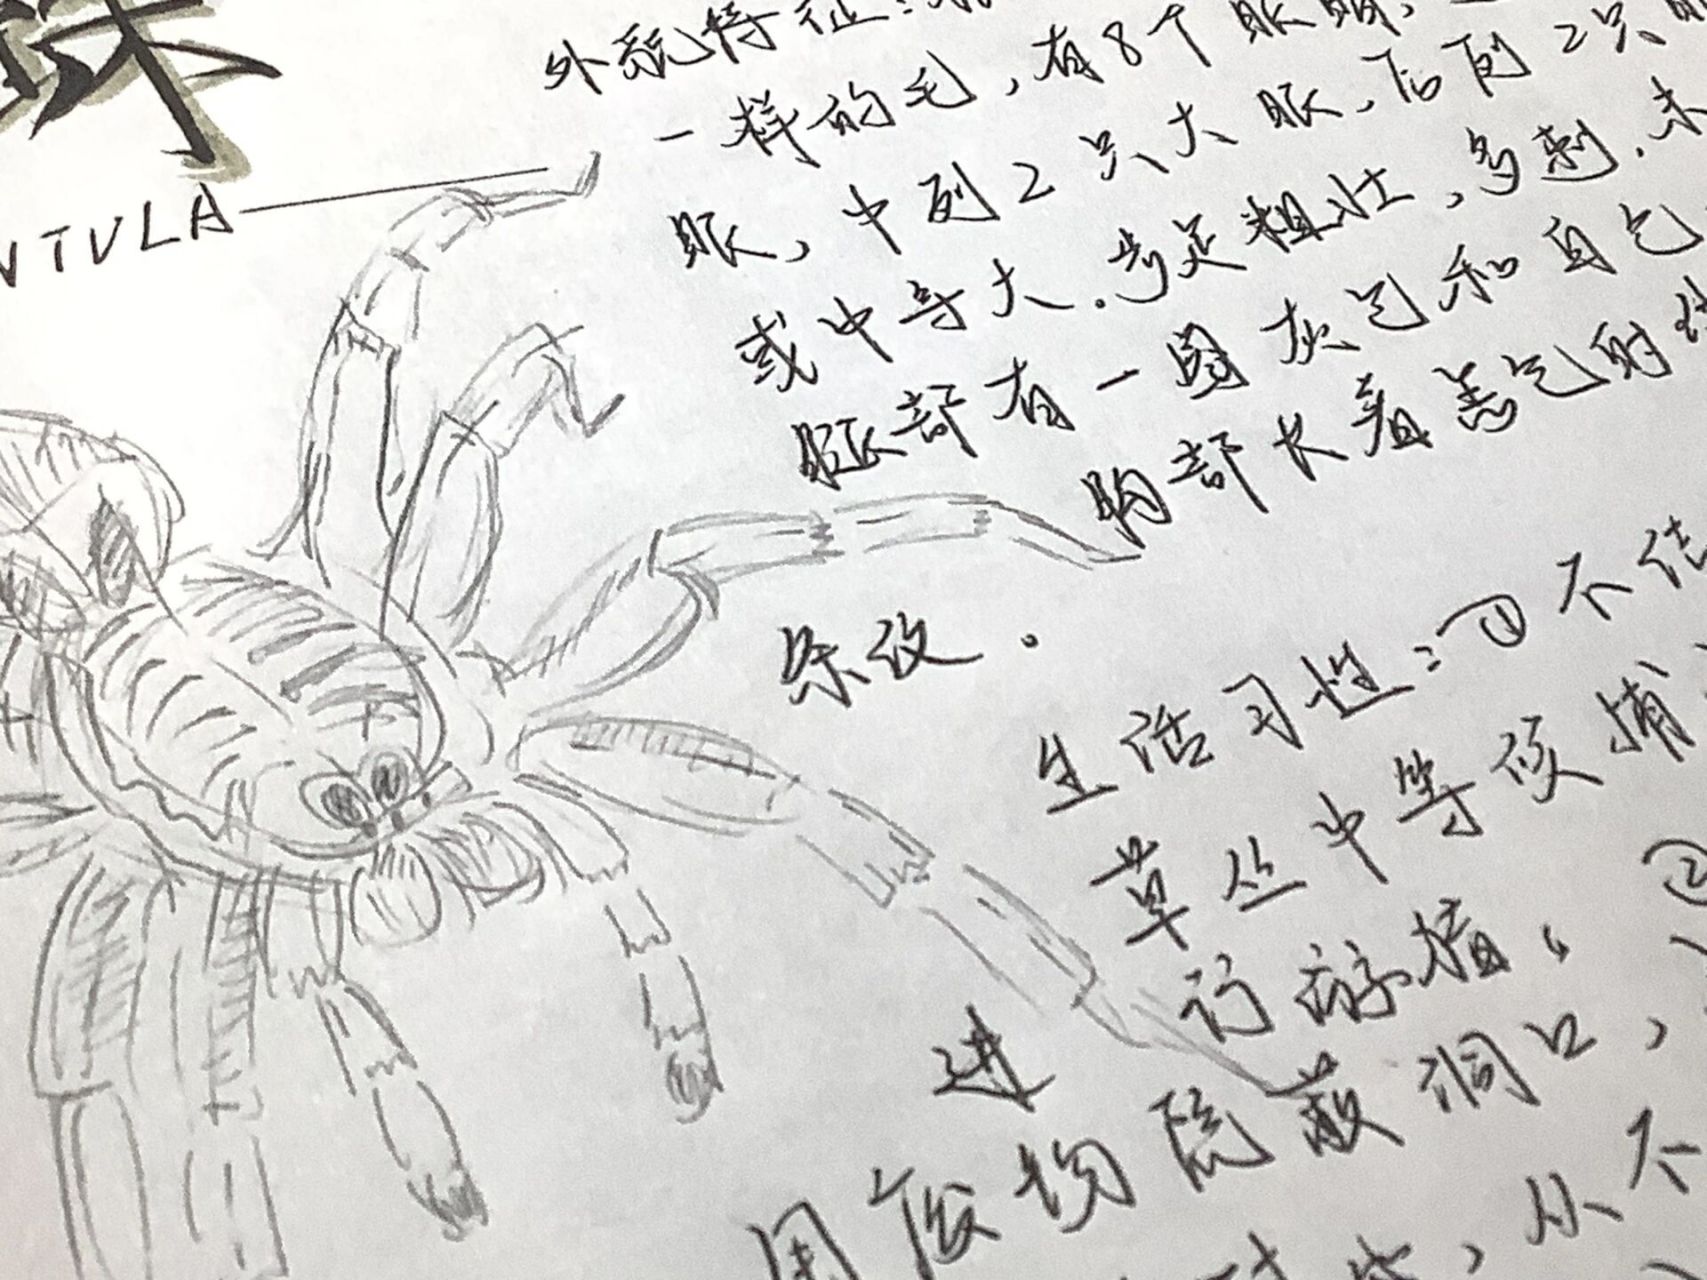 蛛
NTULA
外貌特征:
一样的毛,有8个眼睛,
眼,中列2只大眼,后列2只
或中等大.步足粗壮,多刺.末
腹部有一圈灰色和白色
胸部长着黑色的
条纹.
生活习性:①不结
草丛中等候捕
进行游猎. ②
用废物隐蔽洞口,
,从不